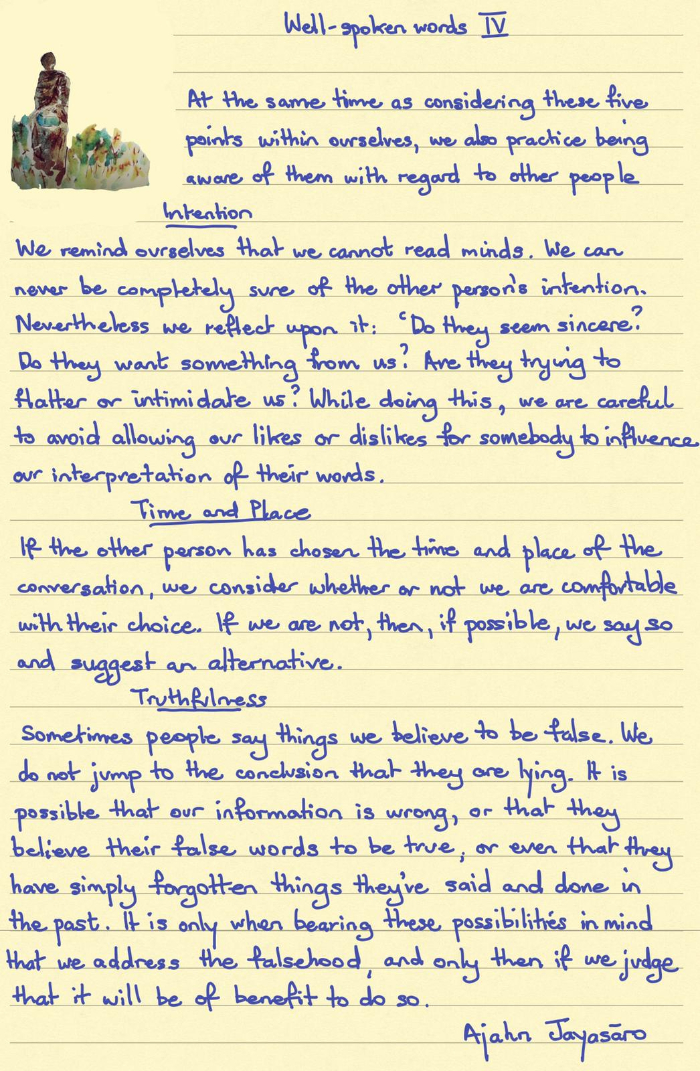 Well-spoken words IV
At the same time as considering these five
points within ourselves, we also practice being
aware of them with regard to other people
Intention
We remind ourselves that we cannot read minds. We can
never be completely sure of the other person's intention.
Nevertheless we reflect upon it: “Do they seem sincere?
Do they want something from us? Are they trying to
flatter or intimidate us? While doing this, we are careful
to avoid allowing our likes or dislikes for somebody to influence
our interpretation of their words.
Time and Place
If the other person has chosen the time and place of the
conversation, we consider whether or not we are comfortable
with their choice. If we are not, then, if possible, we say so
and suggest an alternative.
Truthfulness
Sometimes people say things we believe to be false. We
do not jump to the conclusion that they are lying. It is
possible that our information is wrong, or that they
believe their false words to be true, or even that they
have simply forgotten things they've said and done in
the past. It is only when bearing these possibilities in mind
that we address the falsehood, and only then if we judge
that it will be of benefit to do so.
Ajahn Jayasāro